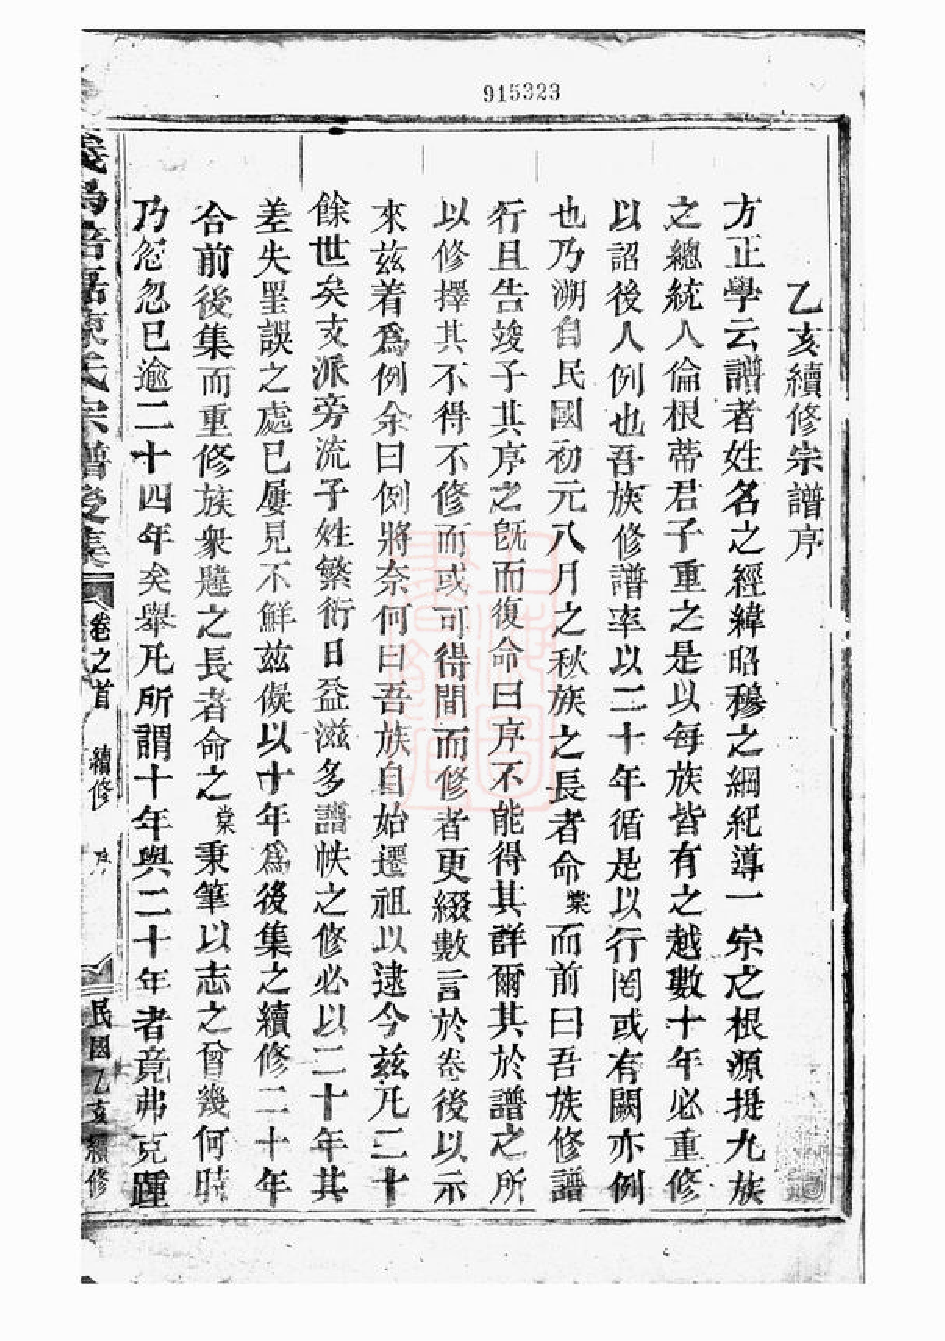 915323
乙亥續修宗譜序
方正學云譜者姓名之經緯昭穆之綱紀導一宗之根源挺九族
之總統人倫根蒂君子重之是以每族皆有之越數十年必重修
以詔後人例也吾族修譜率以二十年循是以行罔或有闕亦例
也乃溯自民國初元八月之秋族之長者命棠而前曰吾族修譜
行且告竣子其序之旣而復命曰序不能得其詳爾其於譜之所
以修擇其不得不修而或可得間而修者更綴數言於卷後以示
來兹着爲例余曰例將奈何曰吾族自始遷祖以逮今兹凡二十
餘世矣支派旁流子姓繁衍日益滋多譜帙之修必以二十年其
差失罣誤之處已屢見不鮮兹儗以十年爲後集之續修二十年
合前後集而重修族衆韙之長者命之棠秉筆以志之曾幾何時
乃忽忽已逾二十四年矣舉凡所謂十年與二十年者竟弗克踵
義烏倍磊陳氏宗譜 集 卷之首 續修 序 民國乙亥續修